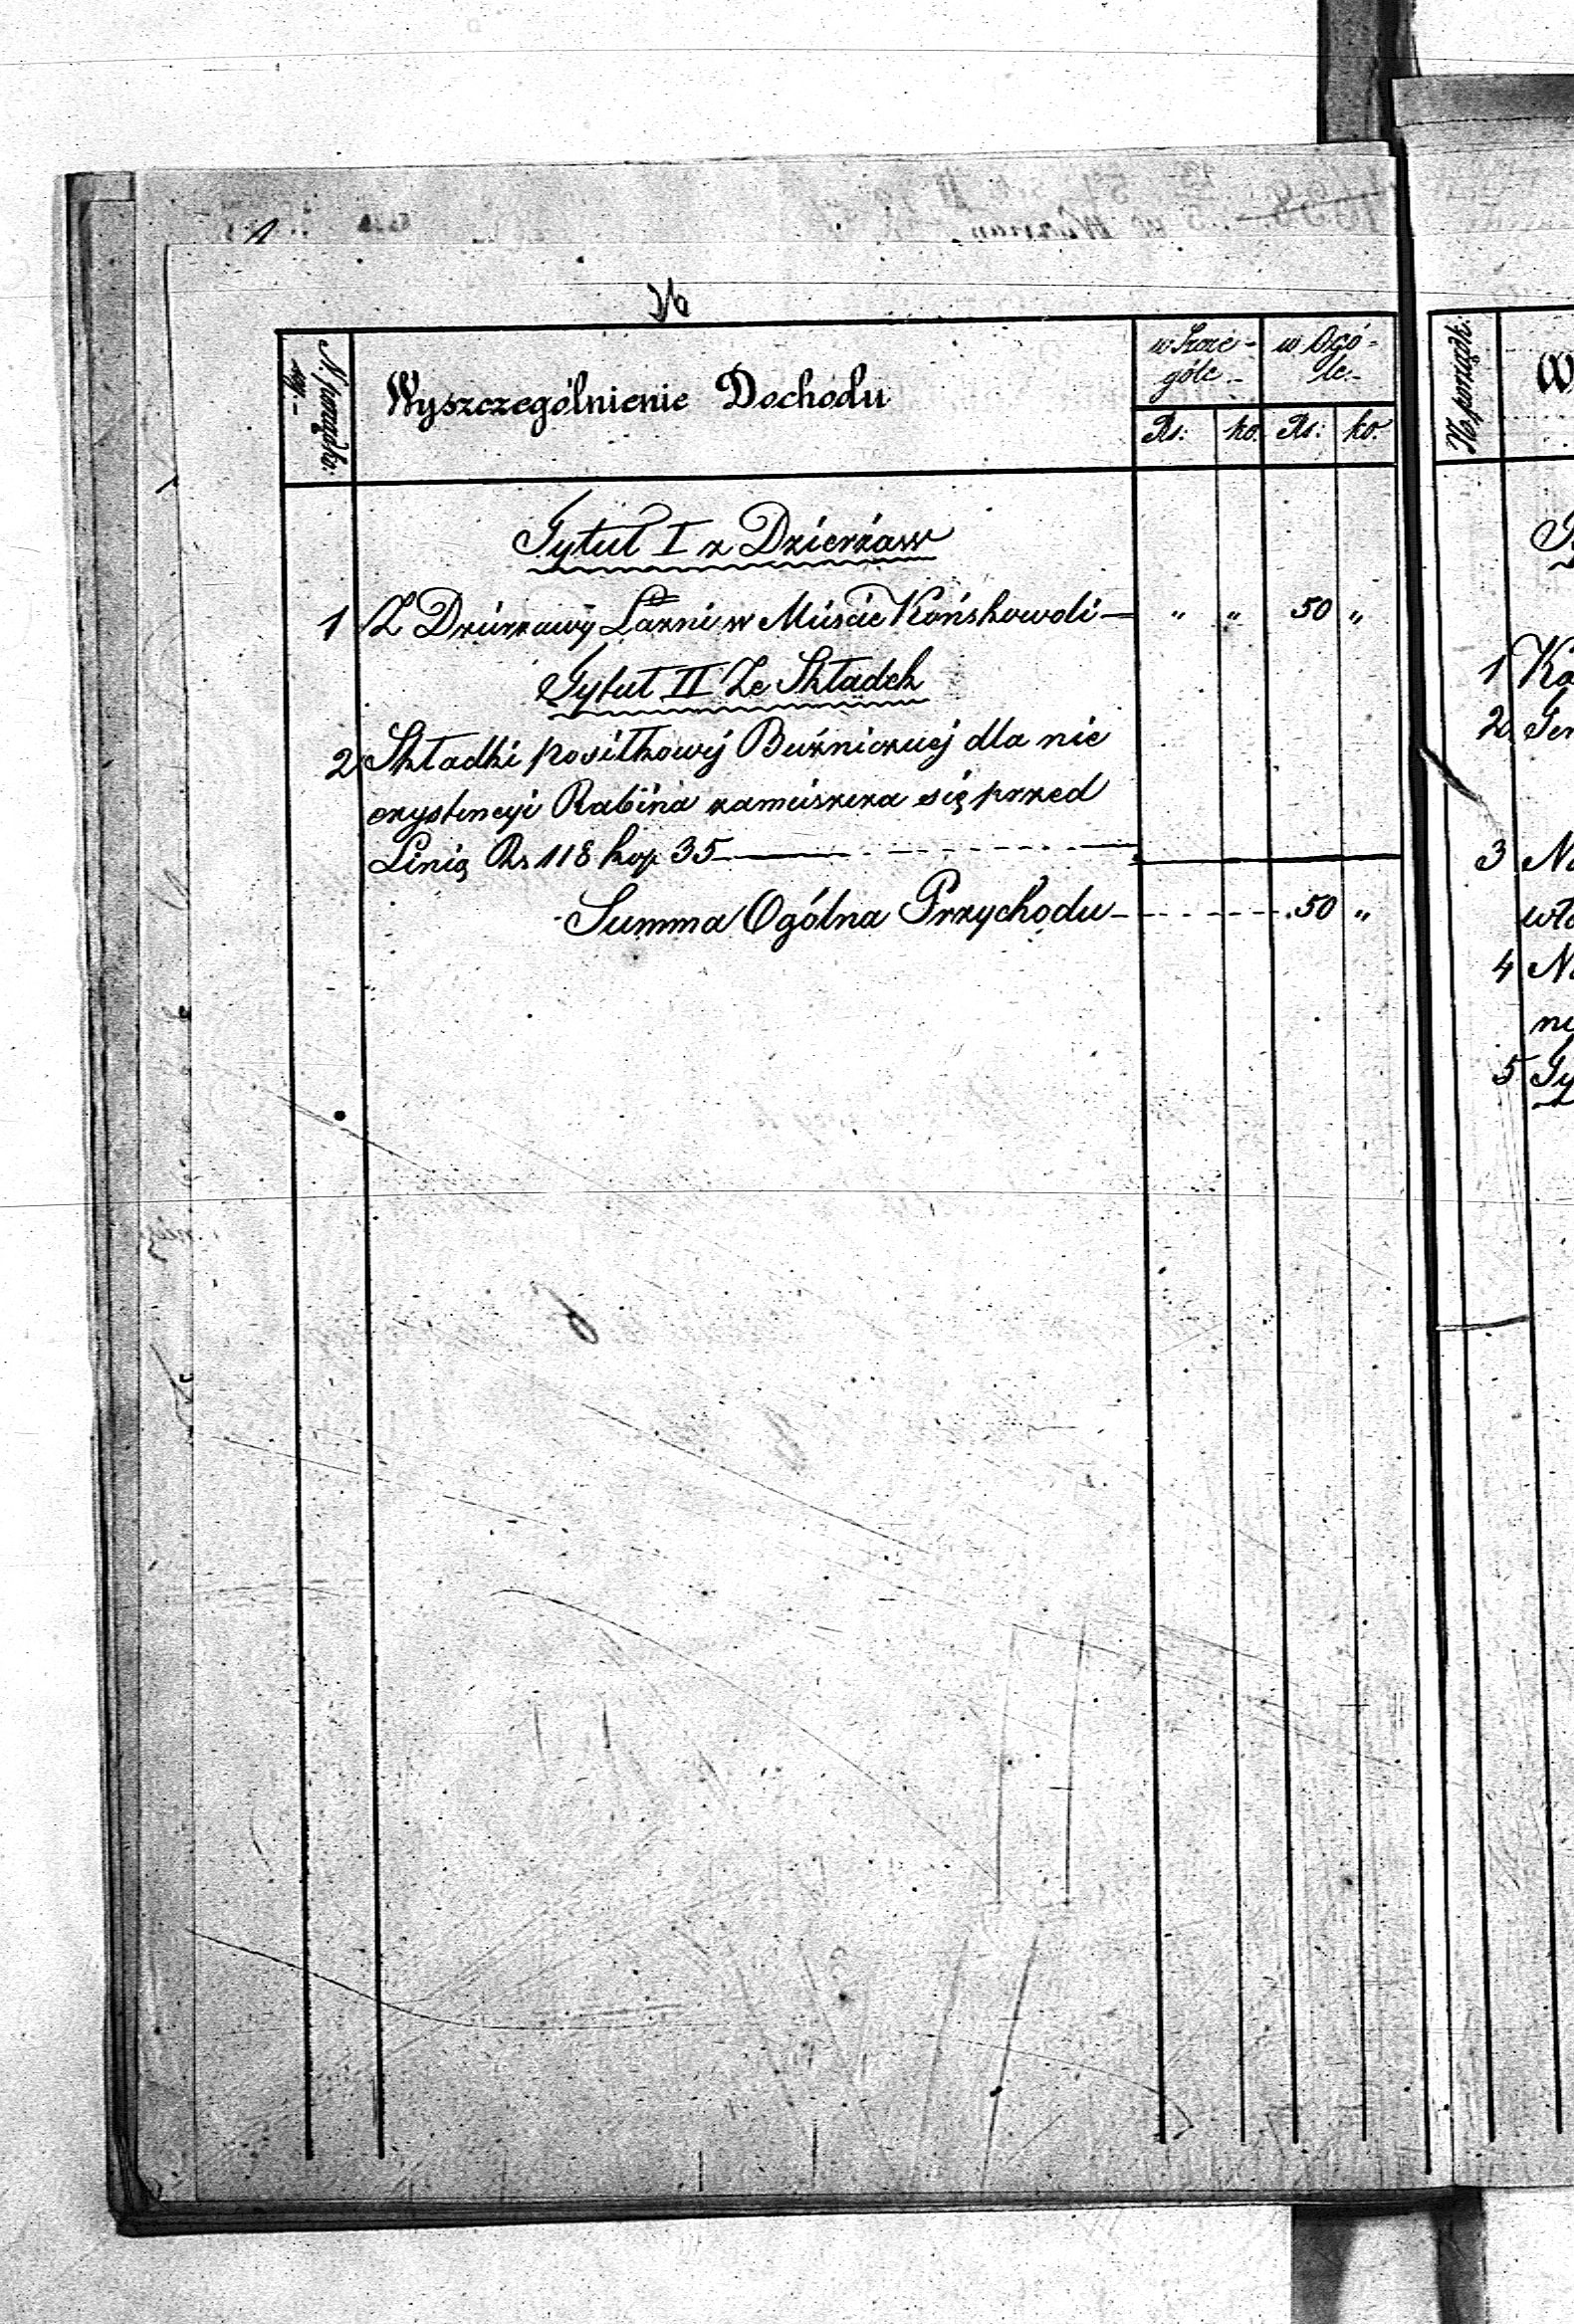 N. porządko:
wy.
Wyszczególnienie Dochodu
w Szcze-
góle
w Ogó-
le.
Rs: ko. Rs: ko.
Tytuł I z Dzierżaw
1 Z Dzierżawy Łaźni w Mieście Końskowoli — " " 50 "
Tytuł II Ze Składek
2 Składki posiłkowej Buźnicznej dla nie
exystencyi Rabina zamieszcza się przed
Linią Rs 118 kop 35
Summa Ogólna Przychodu 50 "
No porządk:
W
1 Ko
2
3 Na
wła
4 Na
5 Ty